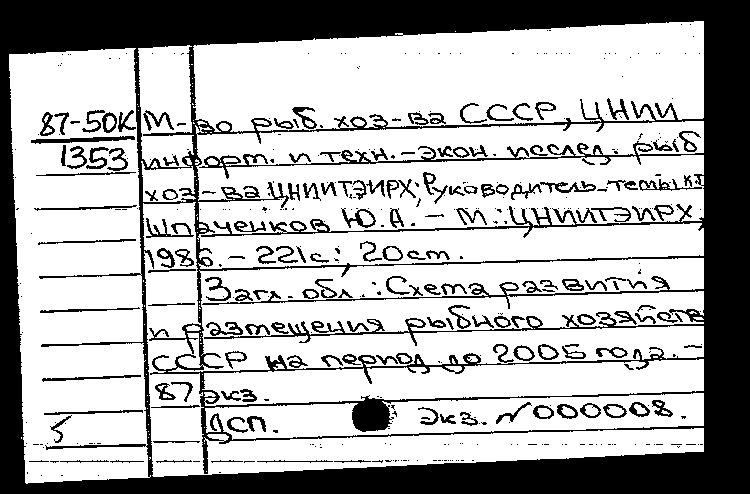 87-50К М-во рыб. хоз-ва СССР, ЦНИИ
1353 информ. и техн.-экон. исслед. рыб
хоз-ва ЦНИИТЭИРХ; Руководитель темы
Шпаченков Ю.А. – М.: ЦНИИТЭИРХ,
1986. – 221с.; 20ст.
Загл. обл.: Схема развития
и размещения рыбного хозяйств
СССР на период до 2005 года. –
87 экз.
5 ДСП. Экз. №000008.